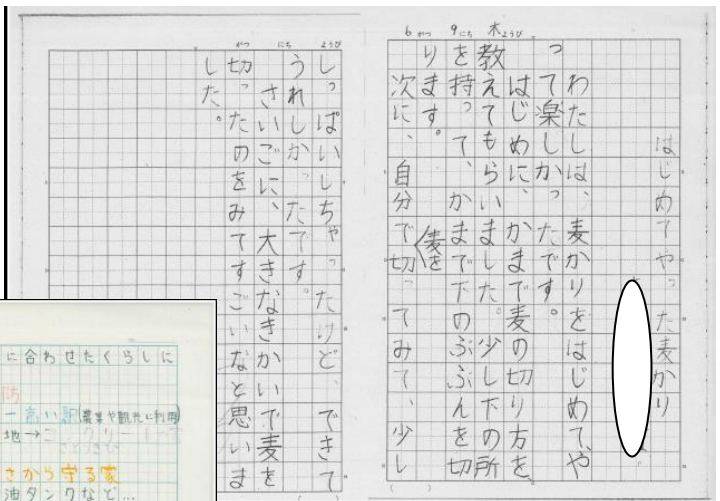 6がつ 9にち 木ようび
はじめてやった麦かり
わたしは、麦かりをはじめて、や
って楽しかったです。
はじめに、かまで麦の切り方を
教えてもらいました。少し下の所
を持って、かまで下のぶぶんを切
ります。
次に、自分で麦を切ってみて、少し
がつ にち ようび
しっぱいしちゃったけど、できて
うれしかったです。
さいごに、大きなきかいで麦を
切ったのをみてすごいなと思いま
した。
に合わせたくらしに
一高い駅(農業や観光に利用)
地→
さとうきび
さから守る家
油タンクなど…